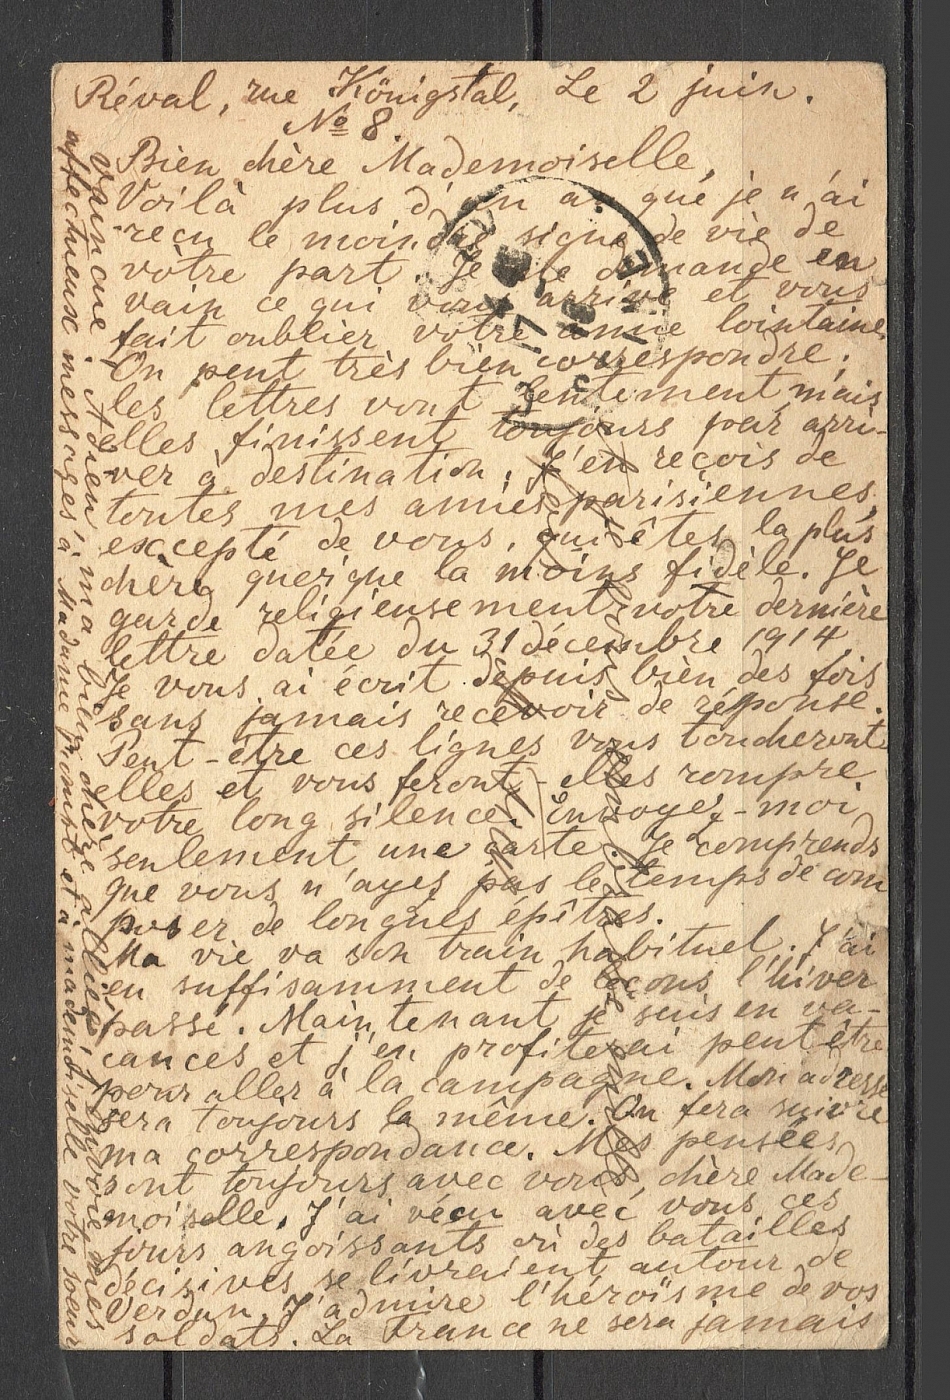 Réval, rue Königstal, Le 2 juin.
№ 8.
Bien chère Mademoiselle,
Voilà plus d'un an que je n'ai
reçu le moindre signe de vie de
vôtre part. Je me demande en
vain ce qui vous arrive et vous
fait oublier votre amie lointaine.
On peut très bien correspondre;
les lettres vont lentement mais
elles finissent toujours par arri-
ver à destination; j'en reçois de
toutes mes amies parisiennes,
excepté de vous, qui êtes la plus
chère quoique la moins fidèle. Je
garde religieusement votre dernière
lettre datée du 31 décembre 1914
Je vous ai écrit depuis bien des fois
sans jamais recevoir de réponse.
Peut-être ces lignes vous toucheront
elles et vous feront-elles rompre
votre long silence. Envoyez-moi
seulement une carte. Je comprends
que vous n'ayez pas le temps de com
poser de longues épîtres.
Ma vie va son train habituel. J'ai
eu suffisamment de leçons l'hiver
passé. Maintenant je suis en va-
cances et j'en profiterai peut être
pour aller à la campagne. Mon adresse
sera toujours la même. On fera suivre
ma correspondance. Mes pensées
sont toujours avec vous, chère Made-
moiselle. J'ai vécu avec vous ces
jours angoissants où des batailles
décisives se livraient autour de
Verdun. J'admire l'héroïsme de vos
soldats. La France ne sera jamais
vaincue. Adieu, ma bien chère alliée, j'envoie mes
affectueuse messages à Madame et à mademoiselle votre soeur